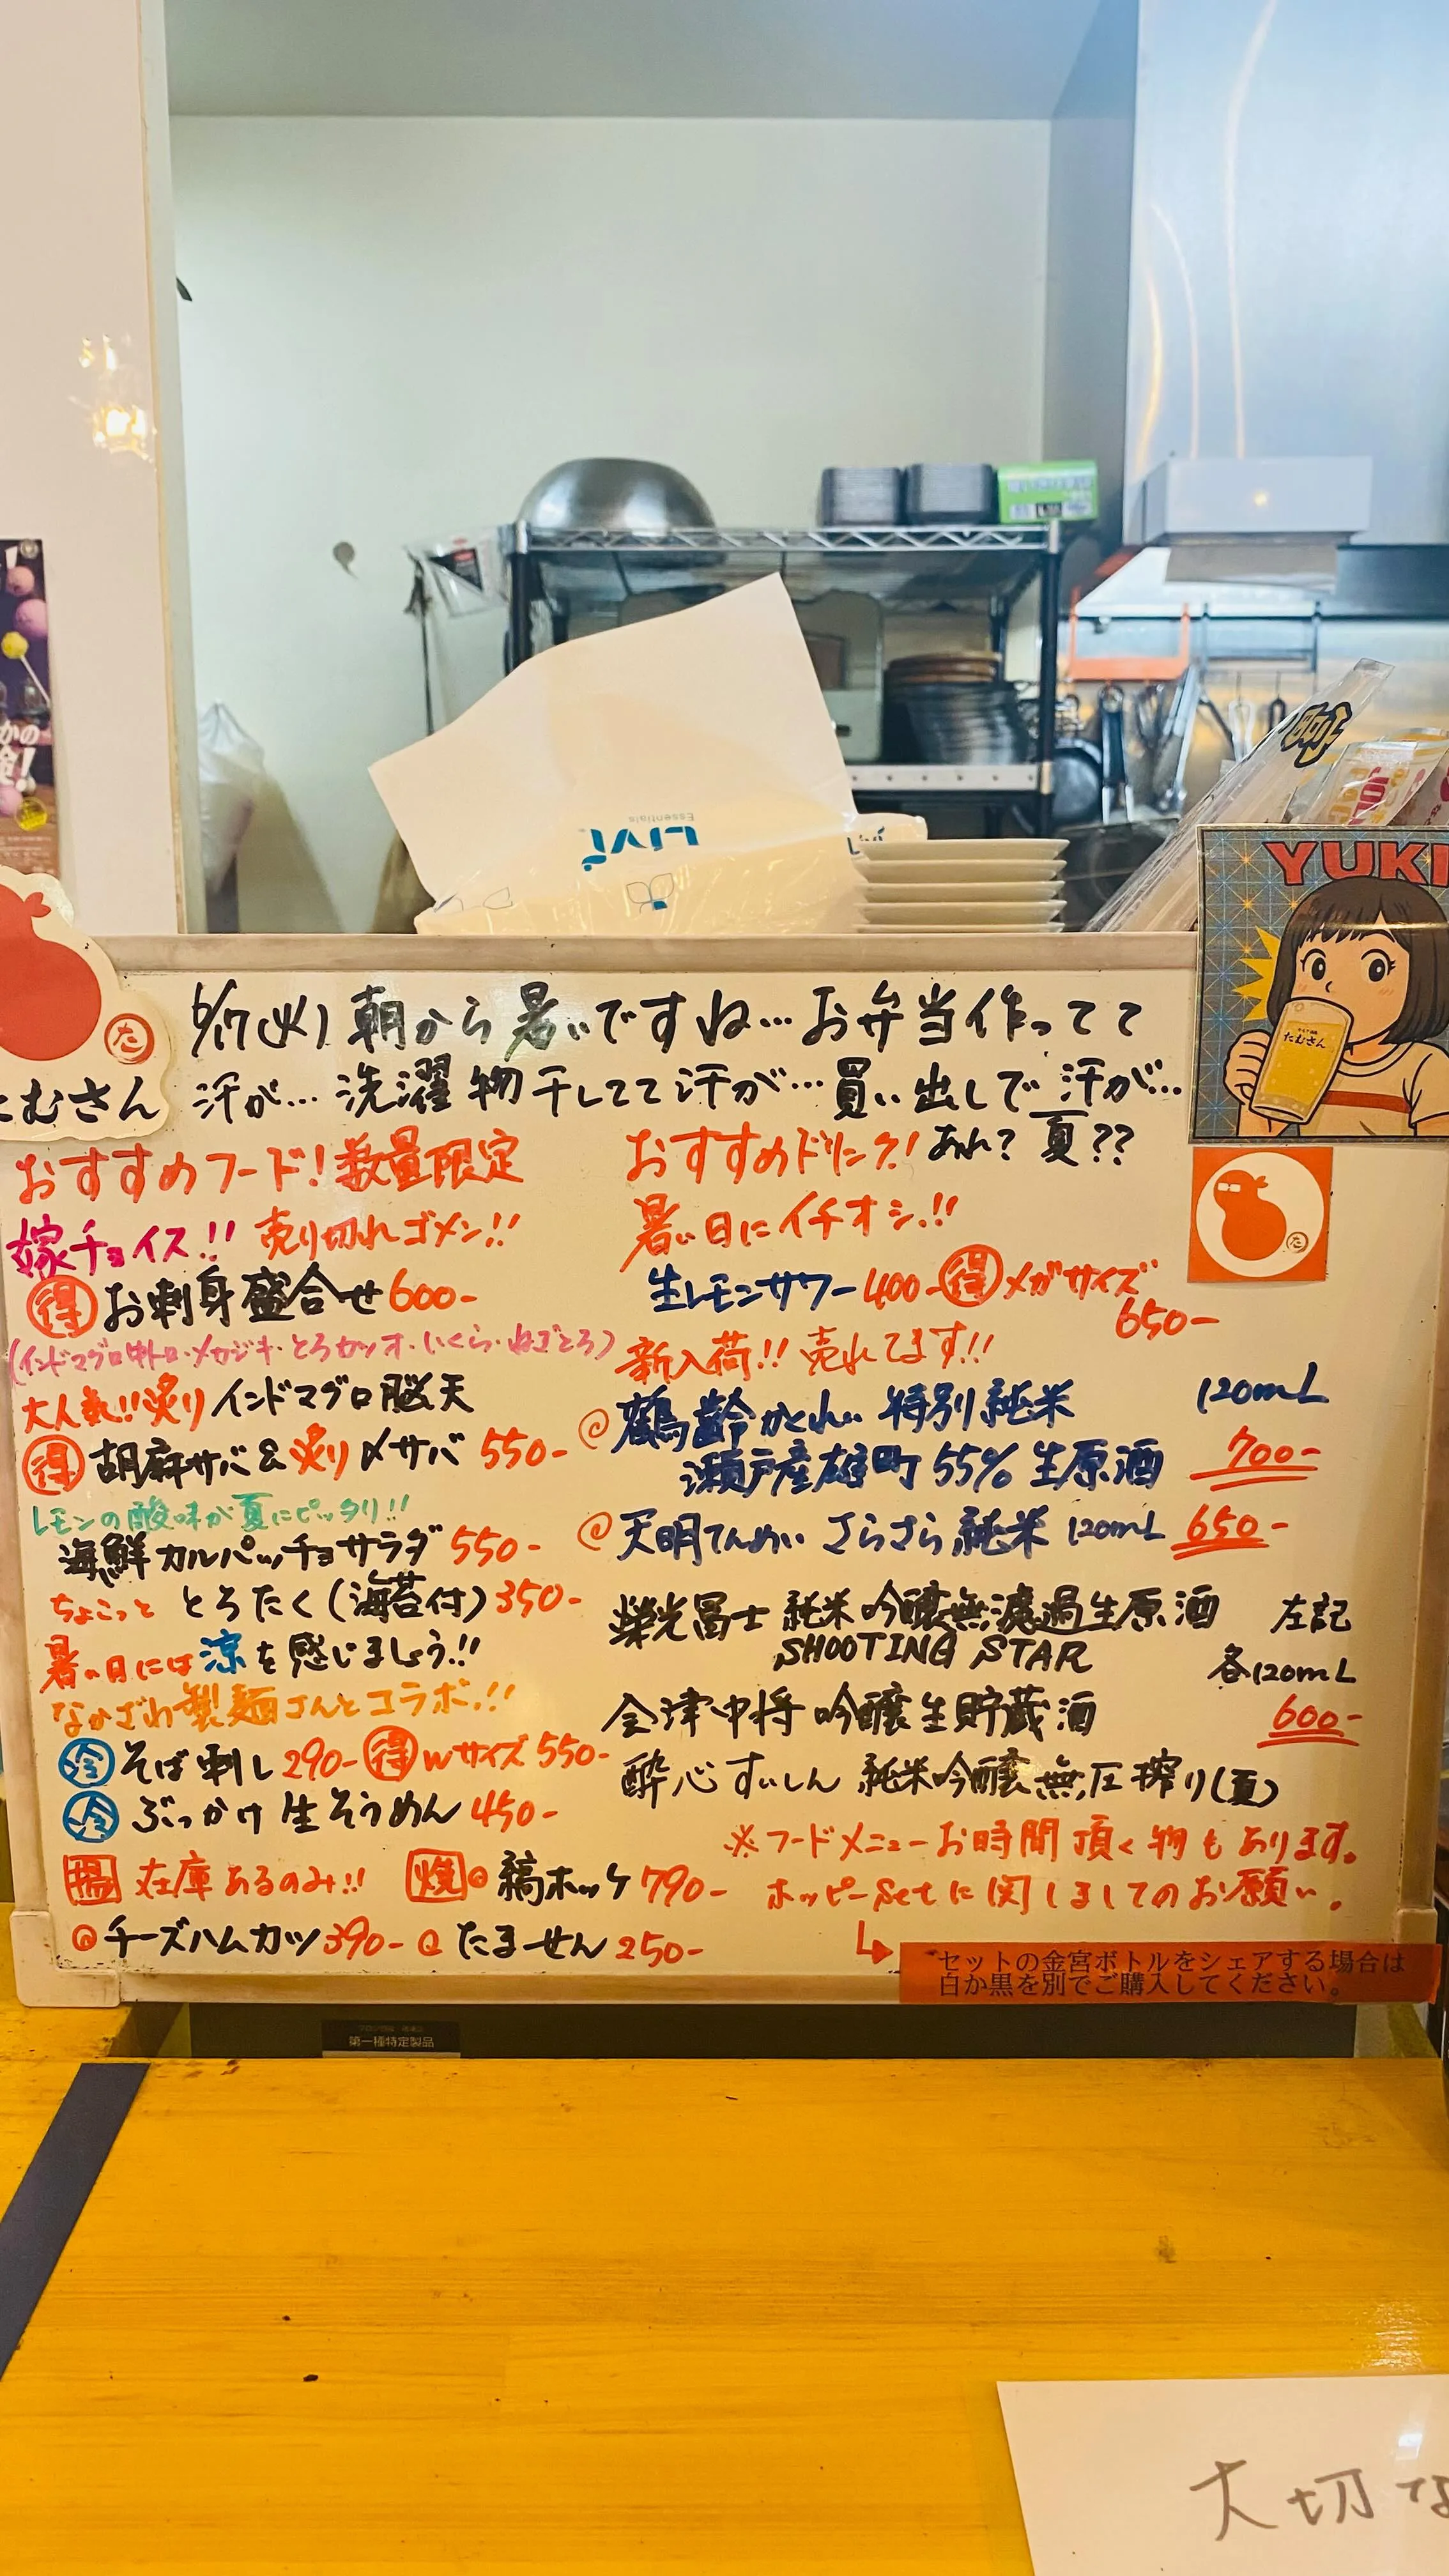 6/17(火) 朝から暑いですね…お弁当作ってて
汗が… 洗濯物干してて汗が…買い出しで汗が…
あれ？夏??
たむさん
YUKI
たむさん
おすすめフード！数量限定
嫁チョイス!! 売り切れゴメン!!
得 お刺身盛合せ 600-
(インドマグロ中トロ・メカジキ・とろカツオ・いくら・ねぎとろ)
大人気!!炙り インドマグロ脳天
得 胡麻サバ&炙り〆サバ 550-
レモンの酸味が夏にピッタリ!!
海鮮カルパッチョサラダ 550-
ちょこっと とろたく(海苔付) 350-
暑い日には涼を感じましょう!!
なかざわ製麺さんとコラボ!!
冷 そば刺し 290- 得 Wサイズ 550-
冷 ぶっかけ生そうめん 450-
揚 在庫あるのみ!! 焼 縞ホッケ 790-
チーズハムカツ 390- たません 250-
おすすめドリンク!
暑い日にイチオシ!!
生レモンサワー 400- 得 メガサイズ
650-
新入荷!! 売れてます!!
鶴齢 かくれい 特別純米 120mL
瀬戸産雄町 55% 生原酒 700-
天明 てんめい さらさら純米 120mL 650-
榮光冨士 純米吟醸無濾過生原酒 左記
SHOOTING STAR 各120mL
会津中将 吟醸生貯蔵酒 600-
酔心 すいしん 純米吟醸無圧搾り(夏)
※フードメニューお時間頂く物もあります。
ホッピーsetに関しましてのお願い。
セットの金宮ボトルをシェアする場合は
白か黒を別でご購入してください。
Livi
Essentials
第一種特定製品
大切な